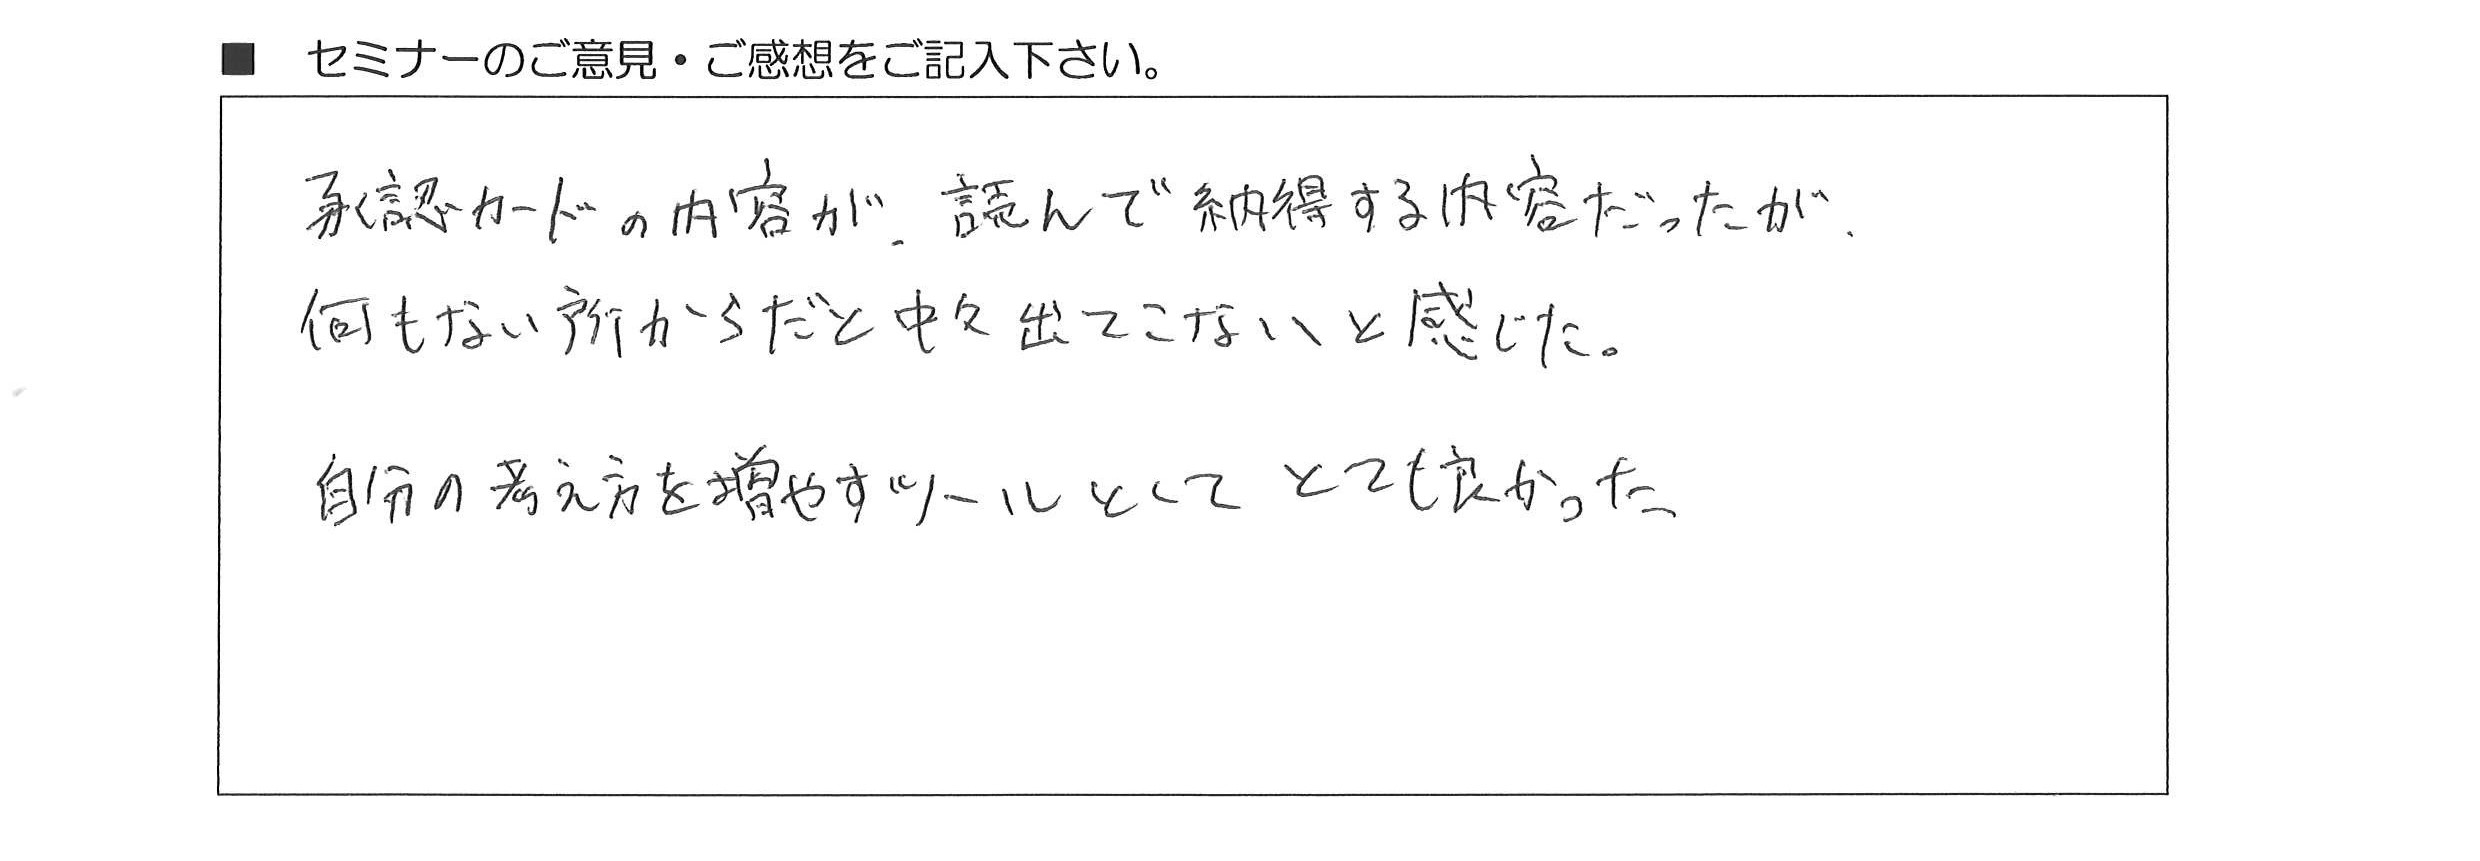 ■ セミナーのご意見・ご感想をご記入下さい。
承認カードの内容が、読んで納得する内容だったが、
何もない所からだと中々出てこないと感じた。
自分の考え方を増やすツールとしてとても良かった